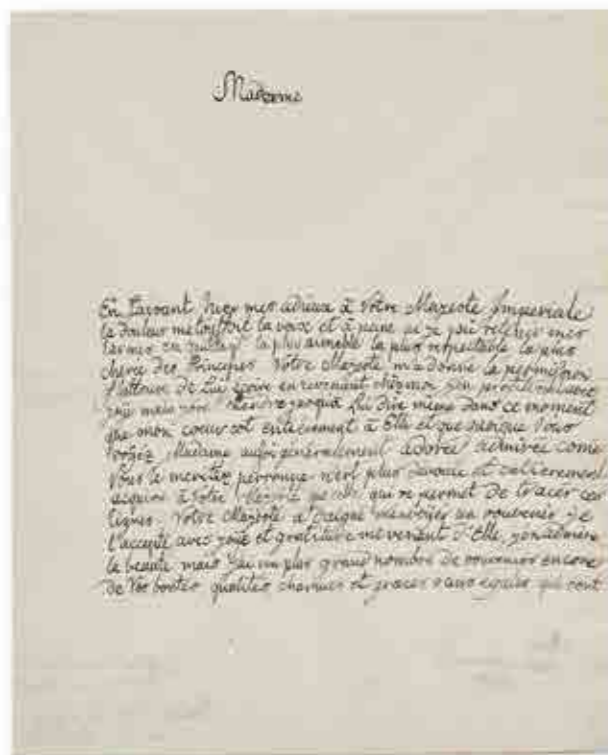 Madame
En faisant hier mes adieux à Votre Majesté Imperiale
la douleur m'etouffoit la voix et à peine ai je pu retenir mes
larmes en quittant la plus aimable la plus respectable la plus
cherie des Princesses Votre Majesté m'a donné la permission
de Lui ecrire en revenant chés moi j'en
mais dire même dans ce moment
que mon coeur est entierement à Elle et que quoique Vous
Madame aussi généralement adorée admirée come
Vous le meritez personne n'est plus devouée et entierement
acquise à Votre Majesté que celle qui se permet de tracer ces
lignes. Votre Majesté a daigné un souvenir je
l'accepte avec joie et gratitude me venant d'Elle, j'en admire
la beauté mais j'ai un plus grand nombre de souvenirs encore
de Vos bontés qualités charmes et graces sans egales qui sont